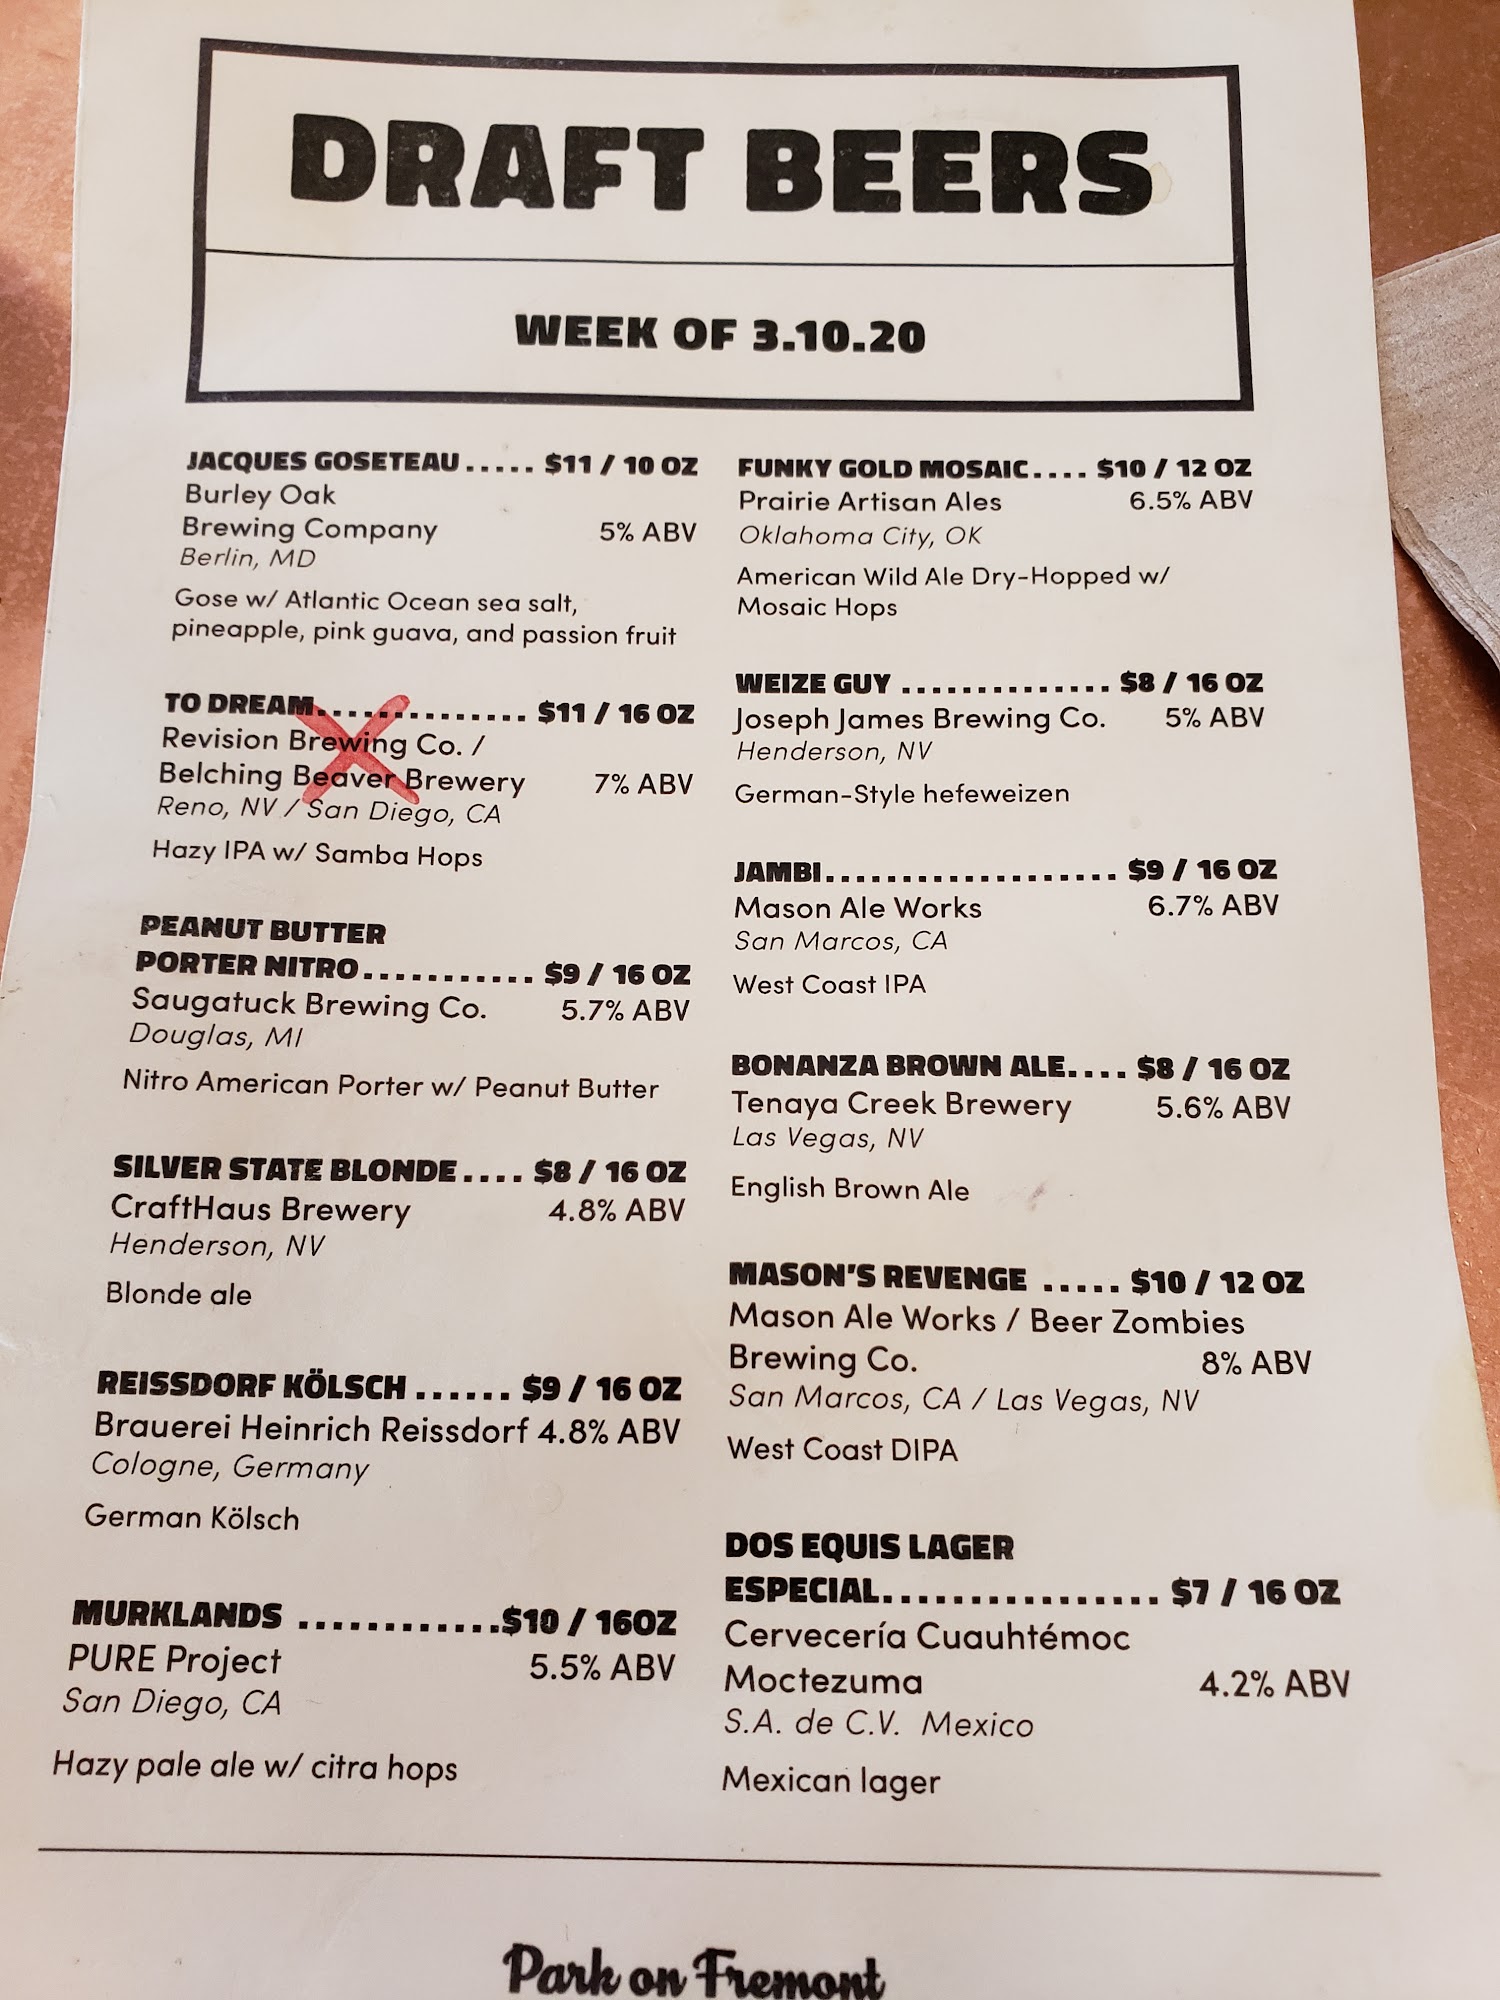 DRAFT BEERS
WEEK OF 3.10.20
JACQUES GOSETEAU..... $11 / 10 OZ
Burley Oak
Brewing Company 5% ABV
Berlin, MD
Gose w/ Atlantic Ocean sea salt,
pineapple, pink guava, and passion fruit
TO DREAM.............. $11 / 16 OZ
Revision Brewing Co. /
Belching Beaver Brewery 7% ABV
Reno, NV / San Diego, CA
Hazy IPA w/ Samba Hops
PEANUT BUTTER
PORTER NITRO........... $9 / 16 OZ
Saugatuck Brewing Co. 5.7% ABV
Douglas, MI
Nitro American Porter w/ Peanut Butter
SILVER STATE BLONDE.... $8 / 16 OZ
CraftHaus Brewery 4.8% ABV
Henderson, NV
Blonde ale
REISSDORF KÖLSCH ...... $9 / 16 OZ
Brauerei Heinrich Reissdorf 4.8% ABV
Cologne, Germany
German Kölsch
MURKLANDS ............$10 / 16OZ
PURE Project 5.5% ABV
San Diego, CA
Hazy pale ale w/ citra hops
FUNKY GOLD MOSAIC.... $10 / 12 OZ
Prairie Artisan Ales 6.5% ABV
Oklahoma City, OK
American Wild Ale Dry-Hopped w/
Mosaic Hops
WEIZE GUY .............. $8 / 16 OZ
Joseph James Brewing Co. 5% ABV
Henderson, NV
German-Style hefeweizen
JAMBI................... $9 / 16 OZ
Mason Ale Works 6.7% ABV
San Marcos, CA
West Coast IPA
BONANZA BROWN ALE.... $8 / 16 OZ
Tenaya Creek Brewery 5.6% ABV
Las Vegas, NV
English Brown Ale
MASON'S REVENGE ..... $10 / 12 OZ
Mason Ale Works / Beer Zombies
Brewing Co. 8% ABV
San Marcos, CA / Las Vegas, NV
West Coast DIPA
DOS EQUIS LAGER
ESPECIAL................ $7 / 16 OZ
Cervecería Cuauhtémoc
Moctezuma 4.2% ABV
S.A. de C.V. Mexico
Mexican lager
Park on Fremont